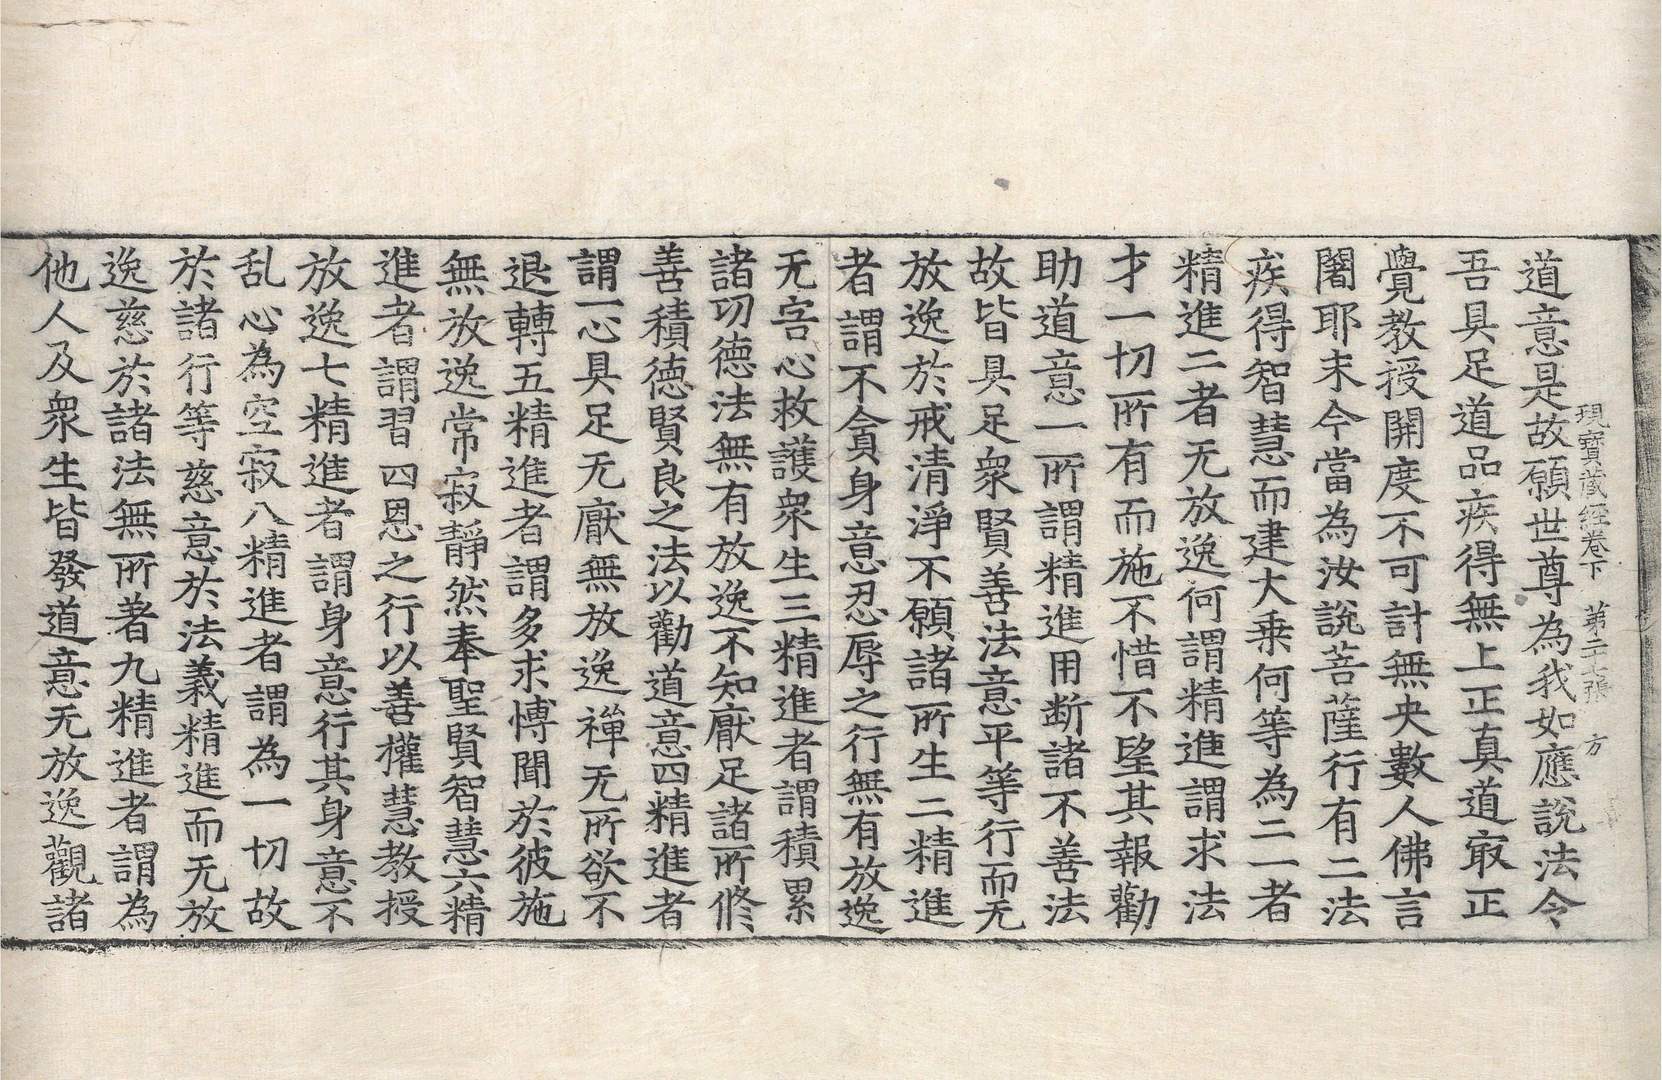 現寶藏經卷下 第二十張 方
道意是故願世尊為我如應說法令
吾具足道品疾得無上正真道㝡正
覺教授開度不可計無央數人佛言
闍耶末今當為汝說菩薩行有二法
疾得智慧而建大乗何等為二一者
精進二者无放逸何謂精進謂求法
才一切所有而施不惜不望其報勸
助道意一所謂精進用斷諸不善法
故皆具足衆賢善法意平等行而无
放逸於戒清淨不願諸所生二精進
者謂不貪身意忍辱之行無有放逸
无害心救護衆生三精進者謂積累
諸功德法無有放逸不知厭足諸所修
善積德賢良之法以勸道意四精進者
謂一心具足无厭無放逸禪无所欲不
退轉五精進者謂多求博聞於彼施
無放逸常寂靜然奉聖賢智慧六精
進者謂習四恩之行以善權慧教授
放逸七精進者謂身意行其身意不
乱心為空寂八精進者謂為一切故
於諸行等慈意於法義精進而无放
逸慈於諸法無所著九精進者謂為
他人及衆生皆發道意无放逸觀諸